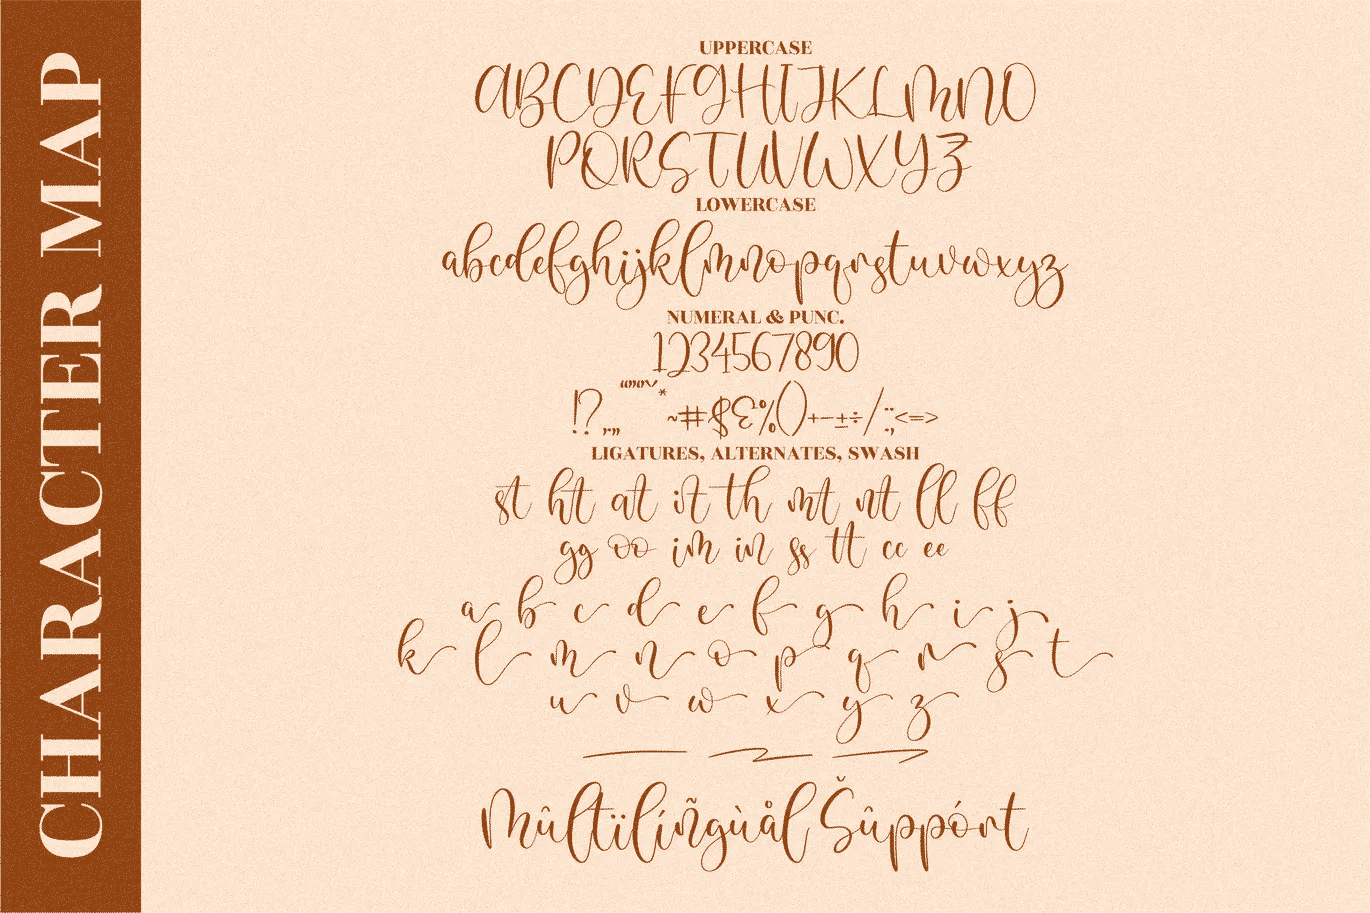 CHARACTER MAP
UPPERCASE
ABCDEFGHIJKLMNO
PQRSTUVWXYZ
LOWERCASE
abcdefghijklmnopqrstuvwxyz
NUMERAL & PUNC.
1234567890
!?‚„“”‘’*~#$&%()+−±÷/:;<=>
LIGATURES, ALTERNATES, SWASH
st ht at it th mt nt ll ff
gg oo im in ss tt cc ee
a b c d e f g h i j
k l m n o p q r s t
u v w x y z
Mûltïlíñgùål Šûppórt